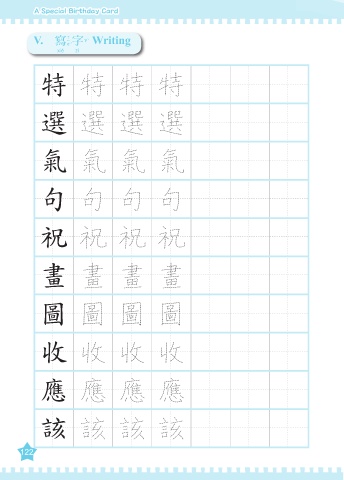 A Special Birthday Card
V. 寫字 Writing
特 特 特 特
選 選 選 選
氣 氣 氣 氣
句 句 句 句
祝 祝 祝 祝
畫 畫 畫 畫
圖 圖 圖 圖
收 收 收 收
應 應 應 應
該 該 該 該
122